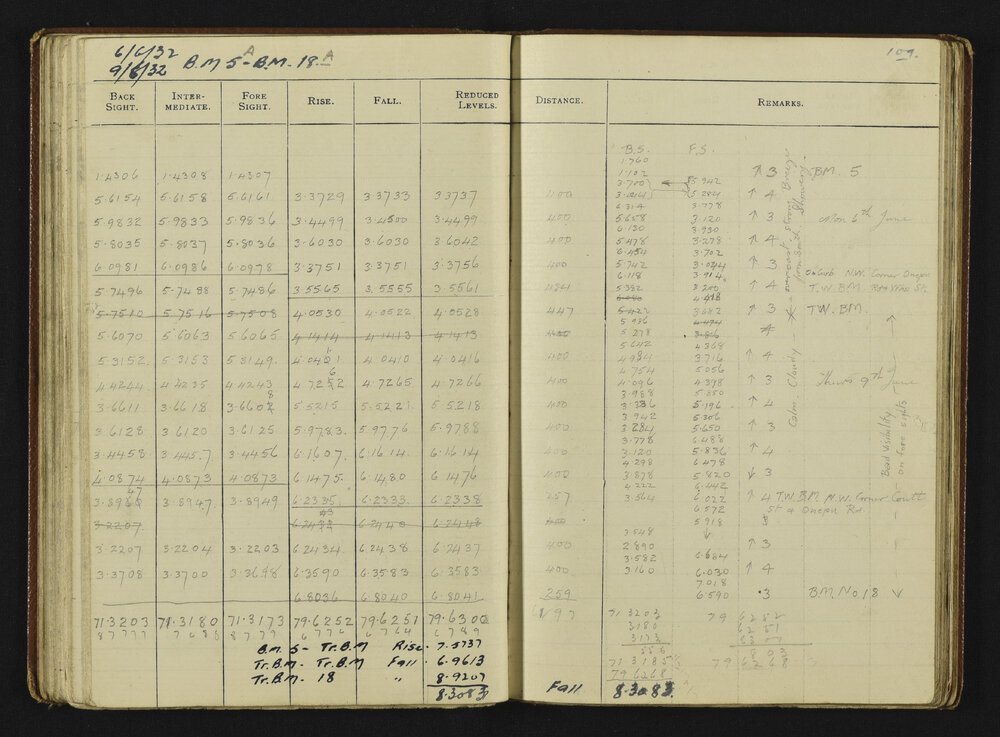 6/6/32
9/6/32 B.M 5A - B.M. 18A
109.
BACK SIGHT. INTER-MEDIATE. FORE SIGHT. RISE. FALL. REDUCED LEVELS. DISTANCE. REMARKS.
B.S. F.S.
1.760
1.4306 1.4308 1.4307 1.102 ↑ 3 B.M. 5
3.700 5.942
5.6154 5.6158 5.6161 3.3729 3.3733 3.3737 5.284 ↑ 4
6.314 3.778
5.9832 5.9833 5.9836 3.4499 3.4500 3.4499 400 5.658 3.120 ↑ 3 Mon 6th June
6.130 3.930
5.8035 5.8037 5.8036 3.6030 3.6030 3.6042 400 5.478 3.278 ↑ 4
6.454 3.702
6.0981 6.0986 6.0978 3.3751 3.3751 3.3756 400 5.742 3.044 ↑ 3
6.118 3.914 N.W. Corner Onepu
5.7496 5.7488 5.7486 3.5565 3.5555 3.5561 484 5.392 3.200 ↑ 4 T.W.B.M.
5.7510 5.7516 5.7508 4.0530 4.0522 4.0528 447 5.422 3.682 ↑ 3 T.W. B.M.
5.936
5.6070 5.6063 5.6065 4.1414 4.1413 4.1413 400 5.278 3.816 4
5.642 4.368
5.3152 5.3153 5.3149 4.0410 4.0416 400 4.984 3.716 ↑ 4
4.754 5.056
4.4244 4.4235 4.4243 4.7265 4.7266 400 4.096 4.398 ↑ 3 Thurs 9th June
3.988 5.850
3.6611 3.6618 3.6608 5.5215 5.5221 5.5218 400 3.336 5.196 ↑ 4
3.942 5.306
3.6128 3.6120 3.6125 5.9783 5.9776 5.9788 400 3.284 5.650 ↑ 3
3.778 6.488
3.4458 3.4457 3.4456 6.1607 6.1614 6.1614 400 3.120 5.836 ↑ 4
4.298 6.478
4.0874 4.0873 4.0873 6.1475 6.1480 6.1476 400 3.878 5.820 ↓ 3
4.222 6.442
3.8947 3.8947 3.8949 6.2335 6.2333 6.2338 257 3.564 6.022 ↑ 4 T.W.B.M. N.W. Corner Coutts
6.572 St & Onepu Rd.
3.2207 6.2440 6.2448 400 5.918 3
3.548
3.2207 3.2204 3.2203 6.2434 6.2438 6.2437 400 2.890 ↑ 3
3.582 6.684
3.3708 3.3700 3.3698 6.3590 6.3583 6.3583 400 3.160 6.030 ↑ 4
7.018
6.8036 6.8040 6.8041 259 6.590 .3 B.M. No 18
Calm, Cloudy
Bad visibility
on fore sights
71.3203 71.3180 71.3173 79.6252 79.6251 79.6300 71 3203 79 6252
3180 6251
3173
B.M. 5 - Tr.B.M Rise. 7.5737
71 3185 79 6268
Tr.B.M - Tr.B.M Fall. 6.9613
79.6268
Tr.B.M. - 18 " 8.9207
8.3083 Fall 8.3083